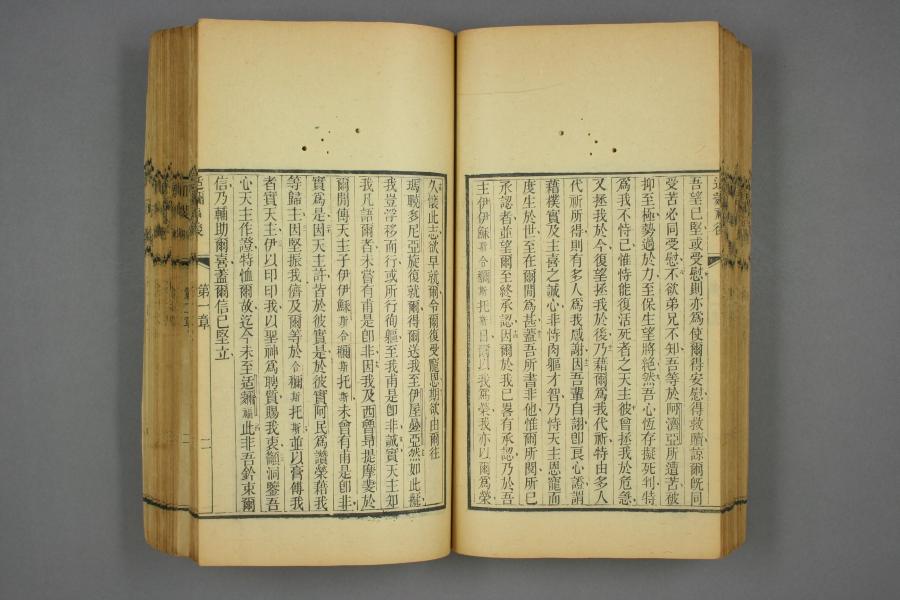 吾望已堅或受慰則亦為使爾得安慰得救贖諒爾旣同
受苦必同受慰不欲弟兄不知吾等於阿濟亞所遭苦被
抑至極勢過於力至保生望將絶然吾心恆存擬死判特
為我不恃己惟恃能復活死者之天主彼曾拯我於危急
又拯我於今復望拯我於後乃藉爾為我代祈特由多人
代祈所得則有多人為我感謝因吾輩自詡卽良心證謂
藉樸實及主喜之誠心非恃肉軀才智乃恃天主恩寵而
度生於世至在爾間為甚蓋吾所書非他惟爾所閱所已
承認者並望爾至終承認因爾於我已畧有承認乃於吾
主伊伊穌斯合爾斯托斯日爾以我為榮我亦以爾為榮
久懷此志欲早就爾令爾復受寵恩期欲由爾往
瑪聀多尼亞旋復就爾得爾送我至伊屋叠亞然如此擬
我豈浮移而行或所行徇軀至我甫是卽非誠實天主知
我凡語爾者未嘗有甫是卽非因我及西曾昻提摩斐於
爾間傳天主子伊伊穌斯合爾斯托斯未曾有甫是卽非
實為是因天主許皆於彼實是於彼實阿民為讚榮藉我
等歸主因堅振我儕及爾等於合爾斯托斯並以膏傅我
者實天主伊以印印我以聖神為聘質賜我衷籲洞鑒吾
心天主作證特恤爾故迄今未至适爾福此非吾鈐束爾
信乃輔助爾喜蓋爾信已堅立
第一章